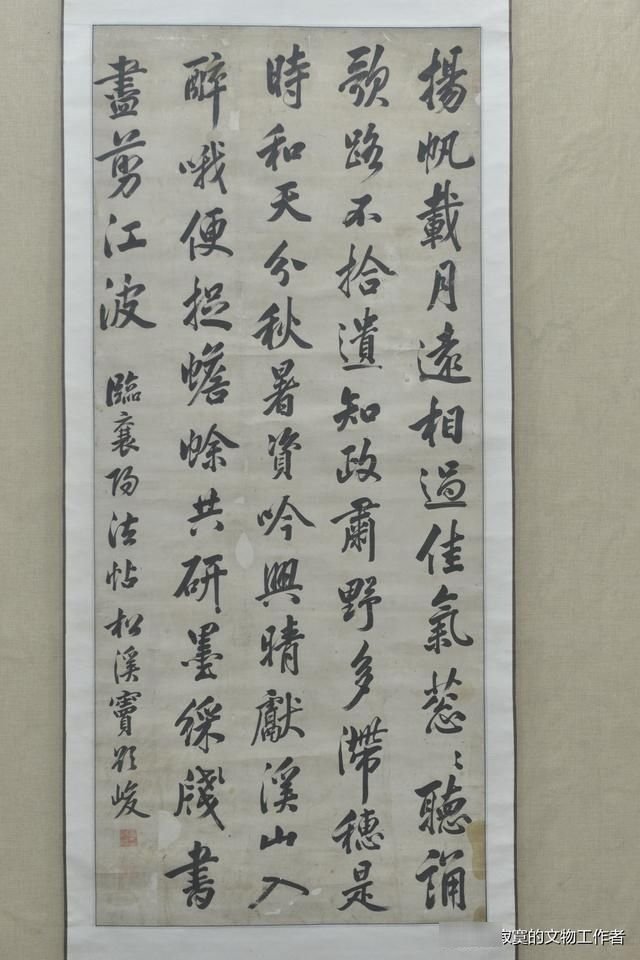 揚帆載月遠相過佳氣蔥〻聽誦
歌路不拾遺知政肅野多滯穗是
時和天分秋暑資吟興晴獻溪山入
醉哦便捉蟾蜍共研墨綵牋書
盡剪江波 臨襄陽法帖 松溪竇峻
的文物工作者